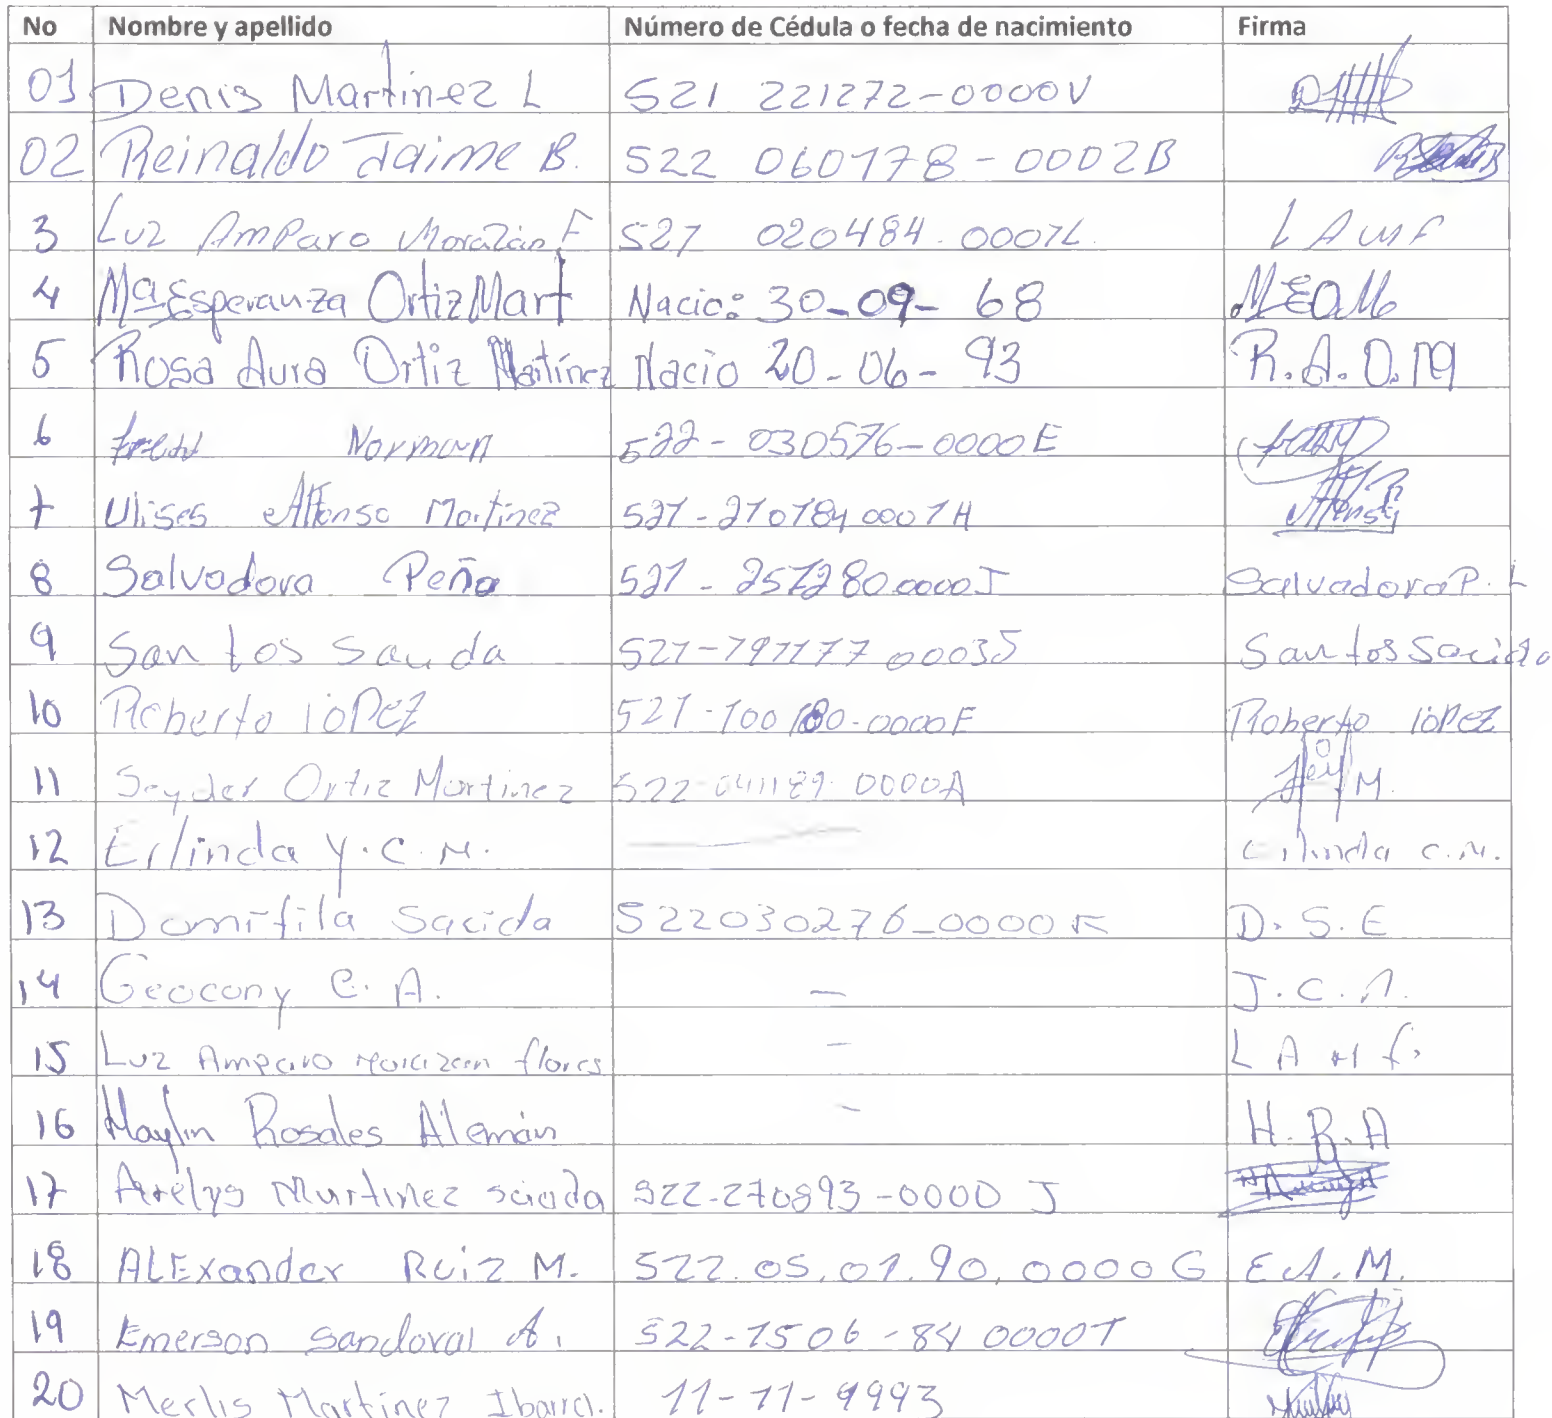 No Nombre y apellido Número de Cédula o fecha de nacimiento Firma
01 Denis Martinez L 521 221272-0000V
02 Reinaldo Jaime B. 522 060178-0002B
3 Luz Amparo Morazán F 521 020484.0001L L A M F
4 Ma Esperanza Ortiz Mart Nacio: 30-09-68 M.E.O.M
5 Rosa Aura Ortiz Martínez Nacio 20-06-93 R.A.O.M
6 Norman 522-030576-0000E
7 Ulises Alfonso Martinez 521-210784 0001H
8 Salvadora Peña 521-251280 0000J Salvadora P. L
9 Santos Sauda 521-191177 0003S Santos Sacida
10 Roberto lóPez 521-100180-0000F Roberto lóPez
11 Seyder Ortiz Martinez 522-041189-0000A
12 Erlinda Y.C.M. Erlinda C.M.
13 Domitila Sacida 522030276-0000K D.S.E
14 Geocony C.A. - J.C.A.
15 Luz Amparo Morazan flores - L A M f.
16 Haylin Rosales Alemán - H.R.A
17 Arelys Martinez 522-270893-0000 J
18 ALExander Ruiz M. 522.05.01.90.0000G E.A.M.
19 Emerson Sandoval A. 522-1506-84 0000T
20 Merlis Martinez Ibarra. 11-11-9993